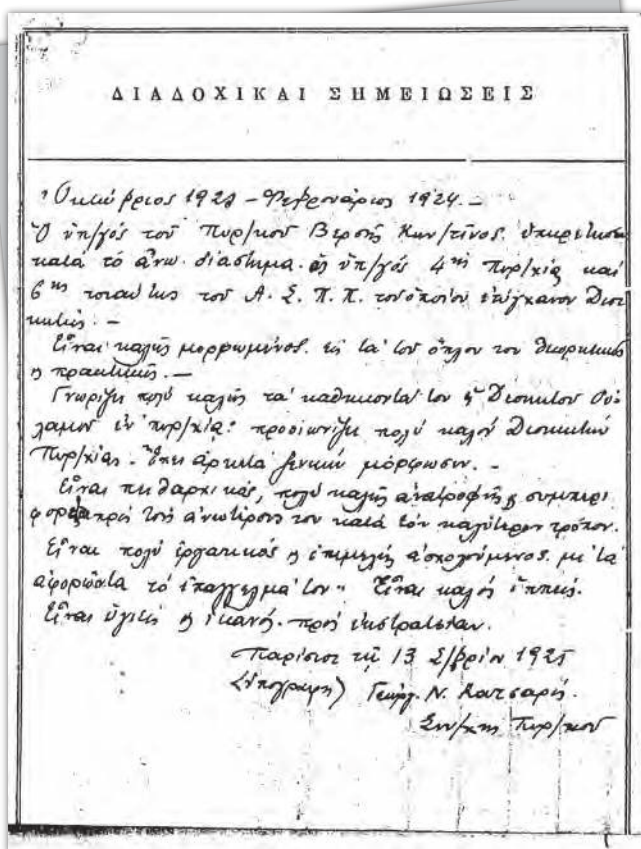 ΔΙΑΔΟΧΙΚΑΙ ΣΗΜΕΙΩΣΕΙΣ
Ὀκτώβριος 1923 - Φεβρουάριος 1924. -
Ὁ ὑπ/γός τοῦ Πυρ/κοῦ Βερσῆς Κων/τῖνος. ὑπηρέτησε
κατά τό ἄνω διάστημα ὡς ὑπ/γός 4ης Πυρ/χίας καί
6ης τοιαύτης τοῦ Α. Σ. Π. Π. τοῦ ὁποίου ἐτύγχανον Διοι
κητής. -
Εἶναι καλῶς μορφωμένος. εἰς τά τοῦ ὅπλου του θεωρητικῶς
ἢ πρακτικῶς. -
Γνωρίζει πολύ καλῶς τά καθήκοντά του ὡς Διοικητοῦ Οὐ-
λαμοῦ ἐν πυρ/χίᾳ: προοιωνίζει πολύ καλόν Διοικητήν
Πυρ/χίας. Ἔχει ἀρκετά γενικήν μόρφωσιν. -
Εἶναι πειθαρχικός, πολύ καλῆς ἀνατροφῆς & συμπερι
φορᾶς πρός τούς ἀνωτέρους του κατά τόν καλύτερον τρόπον.
Εἶναι πολύ ἐργατικός & ἐπιμελῶς ἀσχολούμενος. με τά
ἀφορῶντα τό ἐπάγγελμά του. Εἶναι καλός ἱππεύς.
Εἶναι ὑγιής & ἱκανός. πρός ἐκστρατείαν.
Παρίσιοι τῇ 13 Σ/βρίου 1925
(ὑπογραφή) Γεώργ. Ν. Κατσαρῆς.
Συν/χης Πυρ/κοῦ